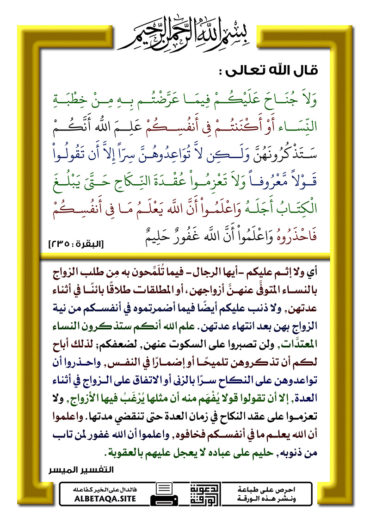 بسم الله الرحمن الرحيم
قال الله تعالى :
وَلَا جُنَاحَ عَلَيْكُمْ فِيمَا عَرَّضْتُم بِهِ مِنْ خِطْبَةِ
النِّسَاء أَوْ أَكْنَنتُمْ فِي أَنفُسِكُمْ عَلِمَ اللّهُ أَنَّكُمْ
سَتَذْكُرُونَهُنَّ وَلَكِن لاَّ تُوَاعِدُوهُنَّ سِرّاً إِلاَّ أَن تَقُولُواْ
قَوْلاً مَّعْرُوفاً وَلاَ تَعْزِمُواْ عُقْدَةَ النِّكَاحِ حَتَّىَ يَبْلُغَ
الْكِتَابُ أَجَلَهُ وَاعْلَمُواْ أَنَّ اللّهَ يَعْلَمُ مَا فِي أَنفُسِكُمْ
فَاحْذَرُوهُ وَاعْلَمُواْ أَنَّ اللّهَ غَفُورٌ حَلِيمٌ
[البقرة : ٢٣٥]
أي ولا إثم عليكم -أيها الرجال- فيما تُلَمِّحون به مِن طلب الزواج
بالنساء المتوفَّى عنهنَّ أزواجهن، أو المطلقات طلاقًا بائنًا في أثناء
عدتهن، ولا ذنب عليكم أيضًا فيما أضمرتموه في أنفسكم من نية
الزواج بهن بعد انتهاء عدتهن. علم الله أنكم ستذكرون النساء
المعتدَّات، ولن تصبروا على السكوت عنهن, لضعفكم; لذلك أباح
لكم أن تذكروهن تلميحًا أو إضمارًا في النفس, واحذروا أن
تواعدوهن على النكاح سرًا بالزنى أو الاتفاق على الزواج في أثناء
العدة, إلا أن تقولوا قولا يُفْهَم منه أن مثلها يُرْغَبُ فيها الأزواج, ولا
تعزموا على عقد النكاح في زمان العدة حتى تنقضي مدتها. واعلموا
أن الله يعلم ما في أنفسكم فخافوه, واعلموا أن الله غفور لمن تاب
من ذنوبه, حليم على عباده لا يعجل عليهم بالعقوبة.
التفسير الميسر
احرص على طباعة
ونشر هذه الورقة
الدعوية
فالدال على الخير كفاعله
ALBETAQA.SITE